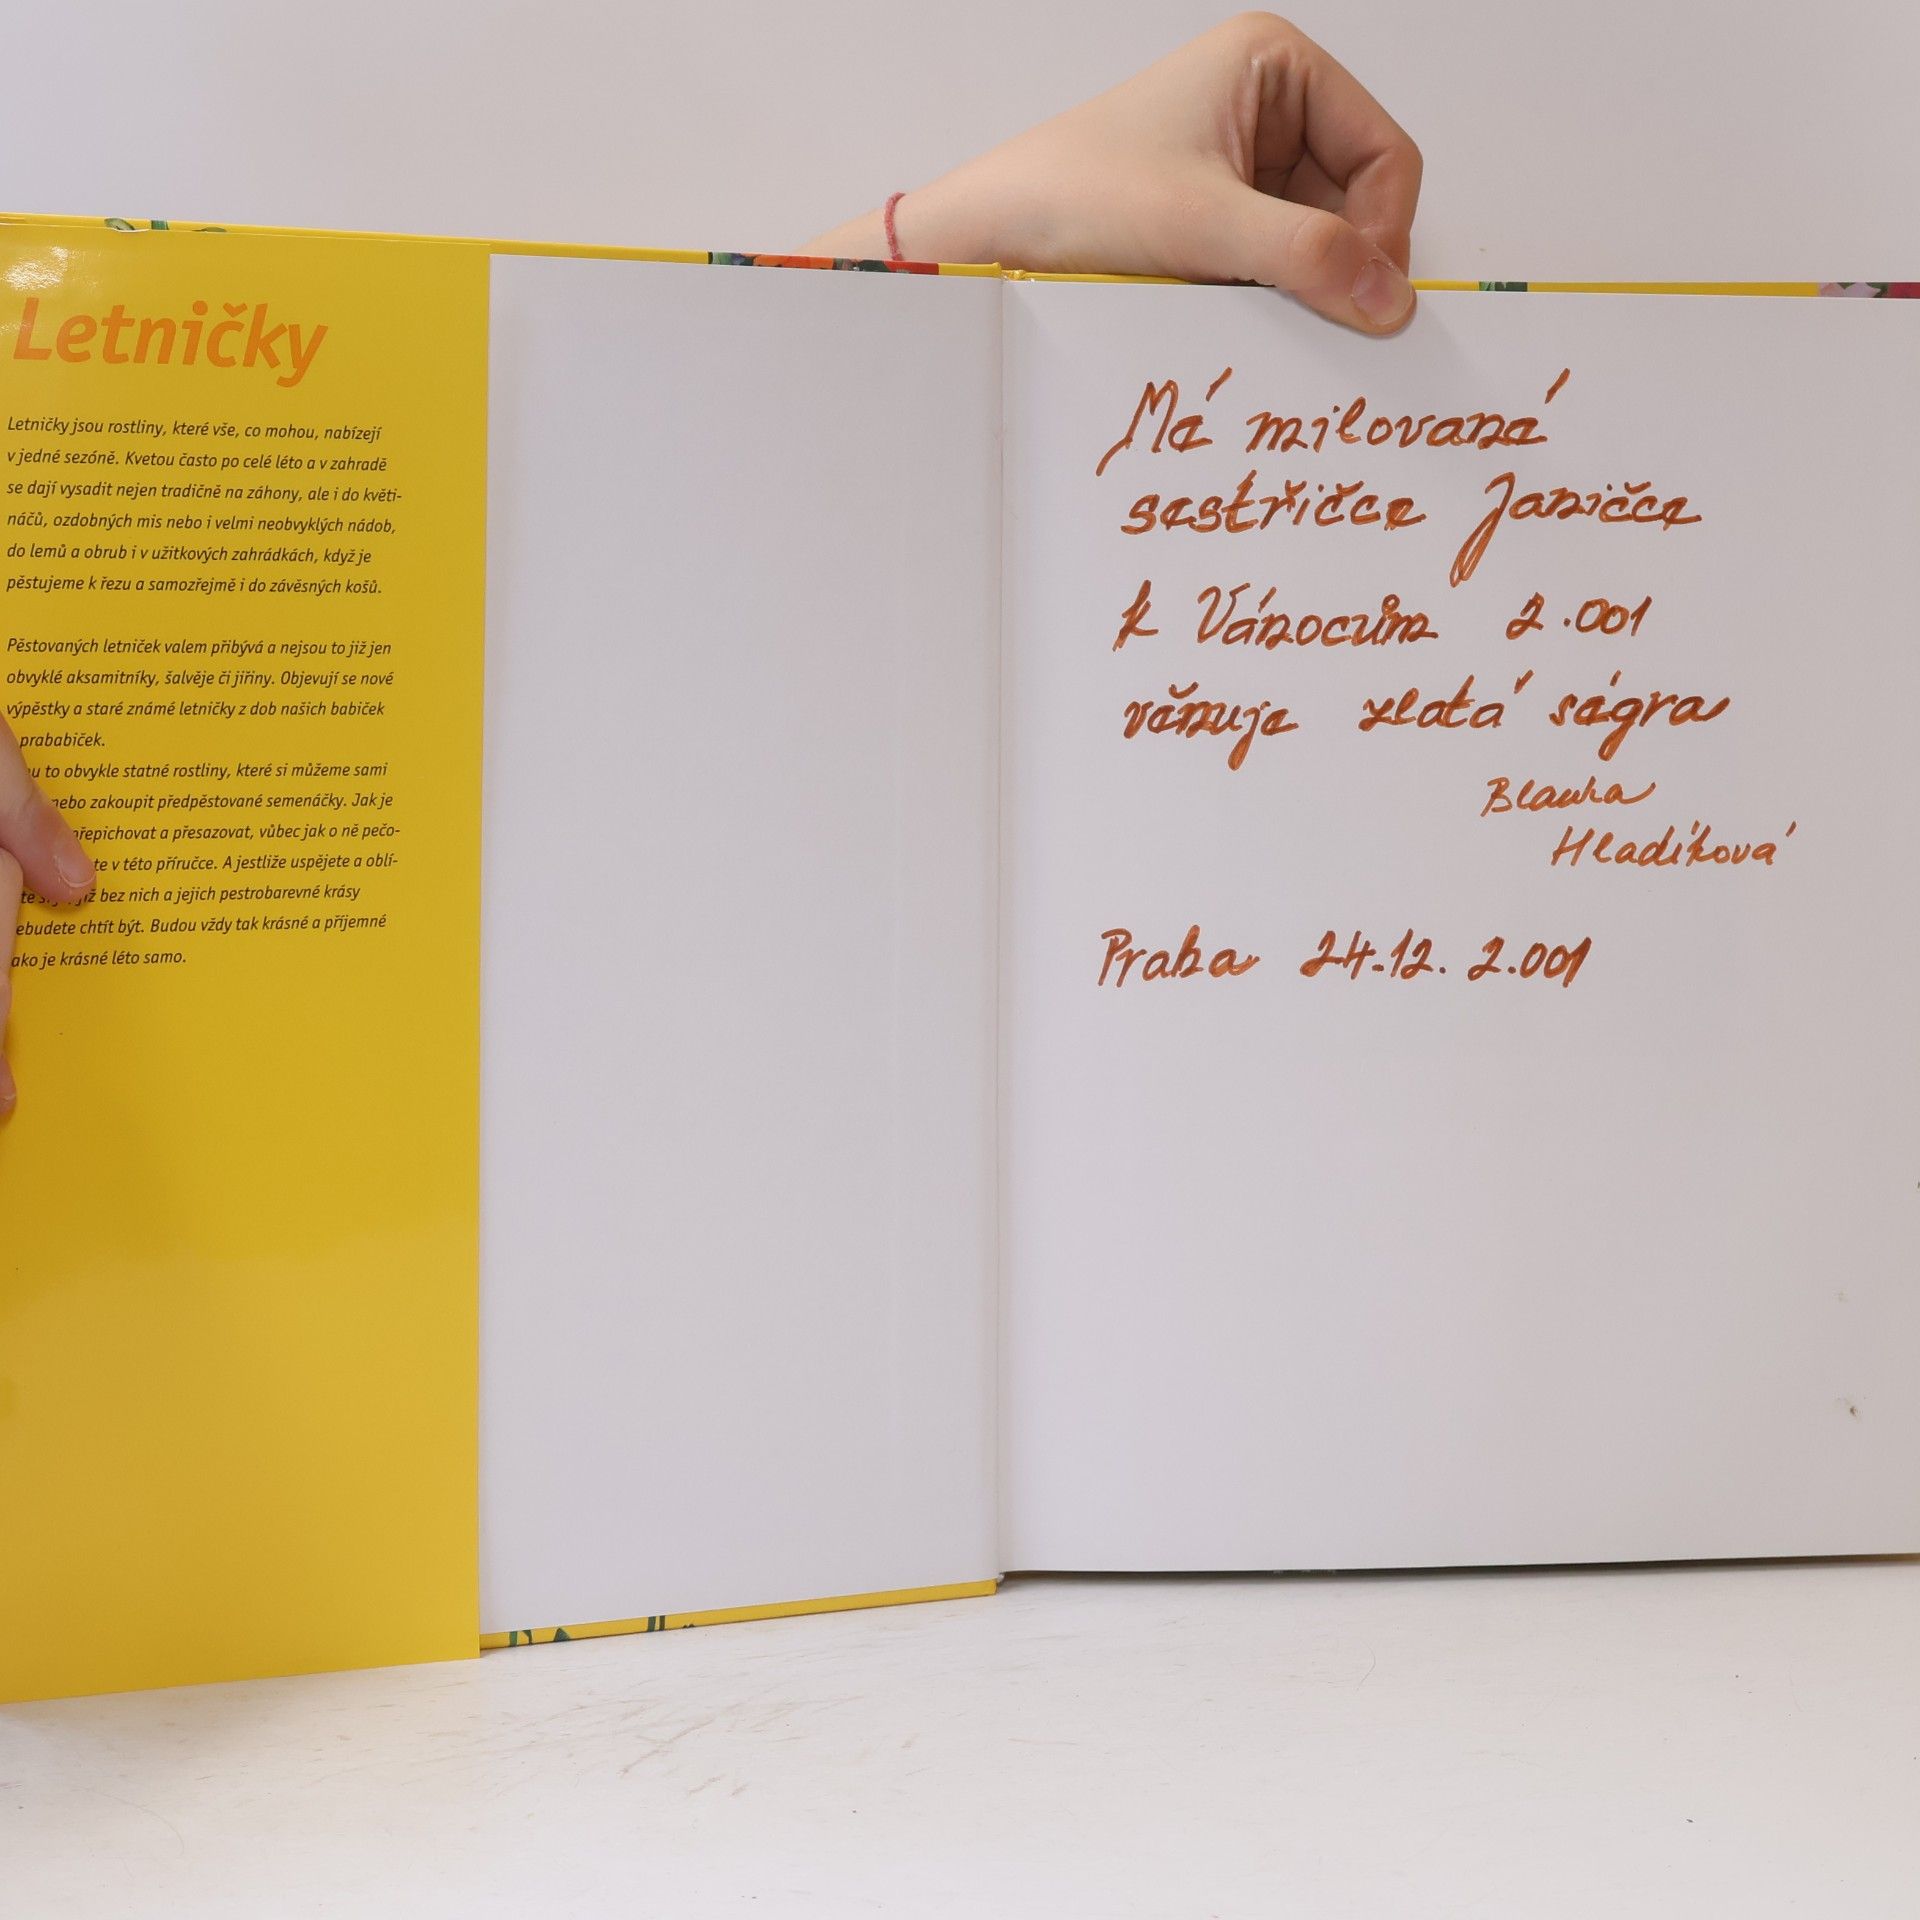 Letničky
Letničky jsou rostliny, které vše, co mohou, nabízejí
v jedné sezóně. Kvetou často po celé léto a v zahradě
se dají vysadit nejen tradičně na záhony, ale i do květi-
náčů, ozdobných mis nebo i velmi neobvyklých nádob,
do lemů a obrub i v užitkových zahrádkách, když je
pěstujeme k řezu a samozřejmě i do závěsných košů.
Pěstovaných letniček valem přibývá a nejsou to již jen
obvyklé aksamitníky, šalvěje či jiřiny. Objevují se nové
výpěstky a staré známé letničky z dob našich babiček
prababiček.
to obvykle statné rostliny, které si můžeme sami
nebo zakoupit předpěstované semenáčky. Jak je
přepichovat a přesazovat, vůbec jak o ně pečo-
v této příručce. A jestliže uspějete a oblí-
bez nich a jejich pestrobarevné krásy
ebudete chtít být. Budou vždy tak krásné a příjemné
ako je krásné léto samo.
Mé milované
sestřičce Janičce
k Vánocům 2.001
věnuje zlatá ségra
Blanka
Hladíková
Praha 24.12. 2.001